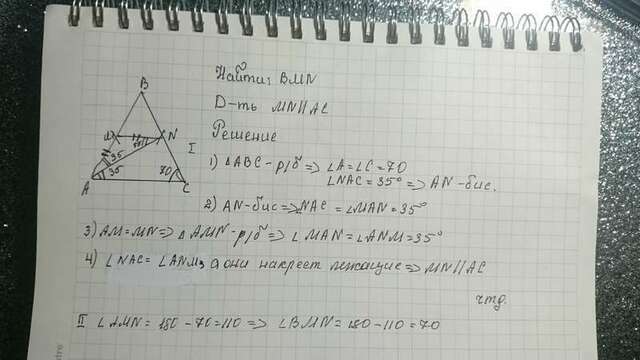 Найти: BMN
Д-ть MN||AC
Решение
B
M
N
I
35
35
70
A
C
1) ΔABC - р/б => ∠A = ∠C = 70
∠NAC = 35° => AN - бис.
2) AN - бис => ∠NAC = ∠MAN = 35°
3) AM = MN => Δ AMN - р/б => ∠MAN = ∠ANM = 35°
4) ∠NAC = ∠ANM, а они накрест лежащие => MN||AC
чтд.
II ∠AMN = 180 - 70 = 110 => ∠BMN = 180 - 110 = 70